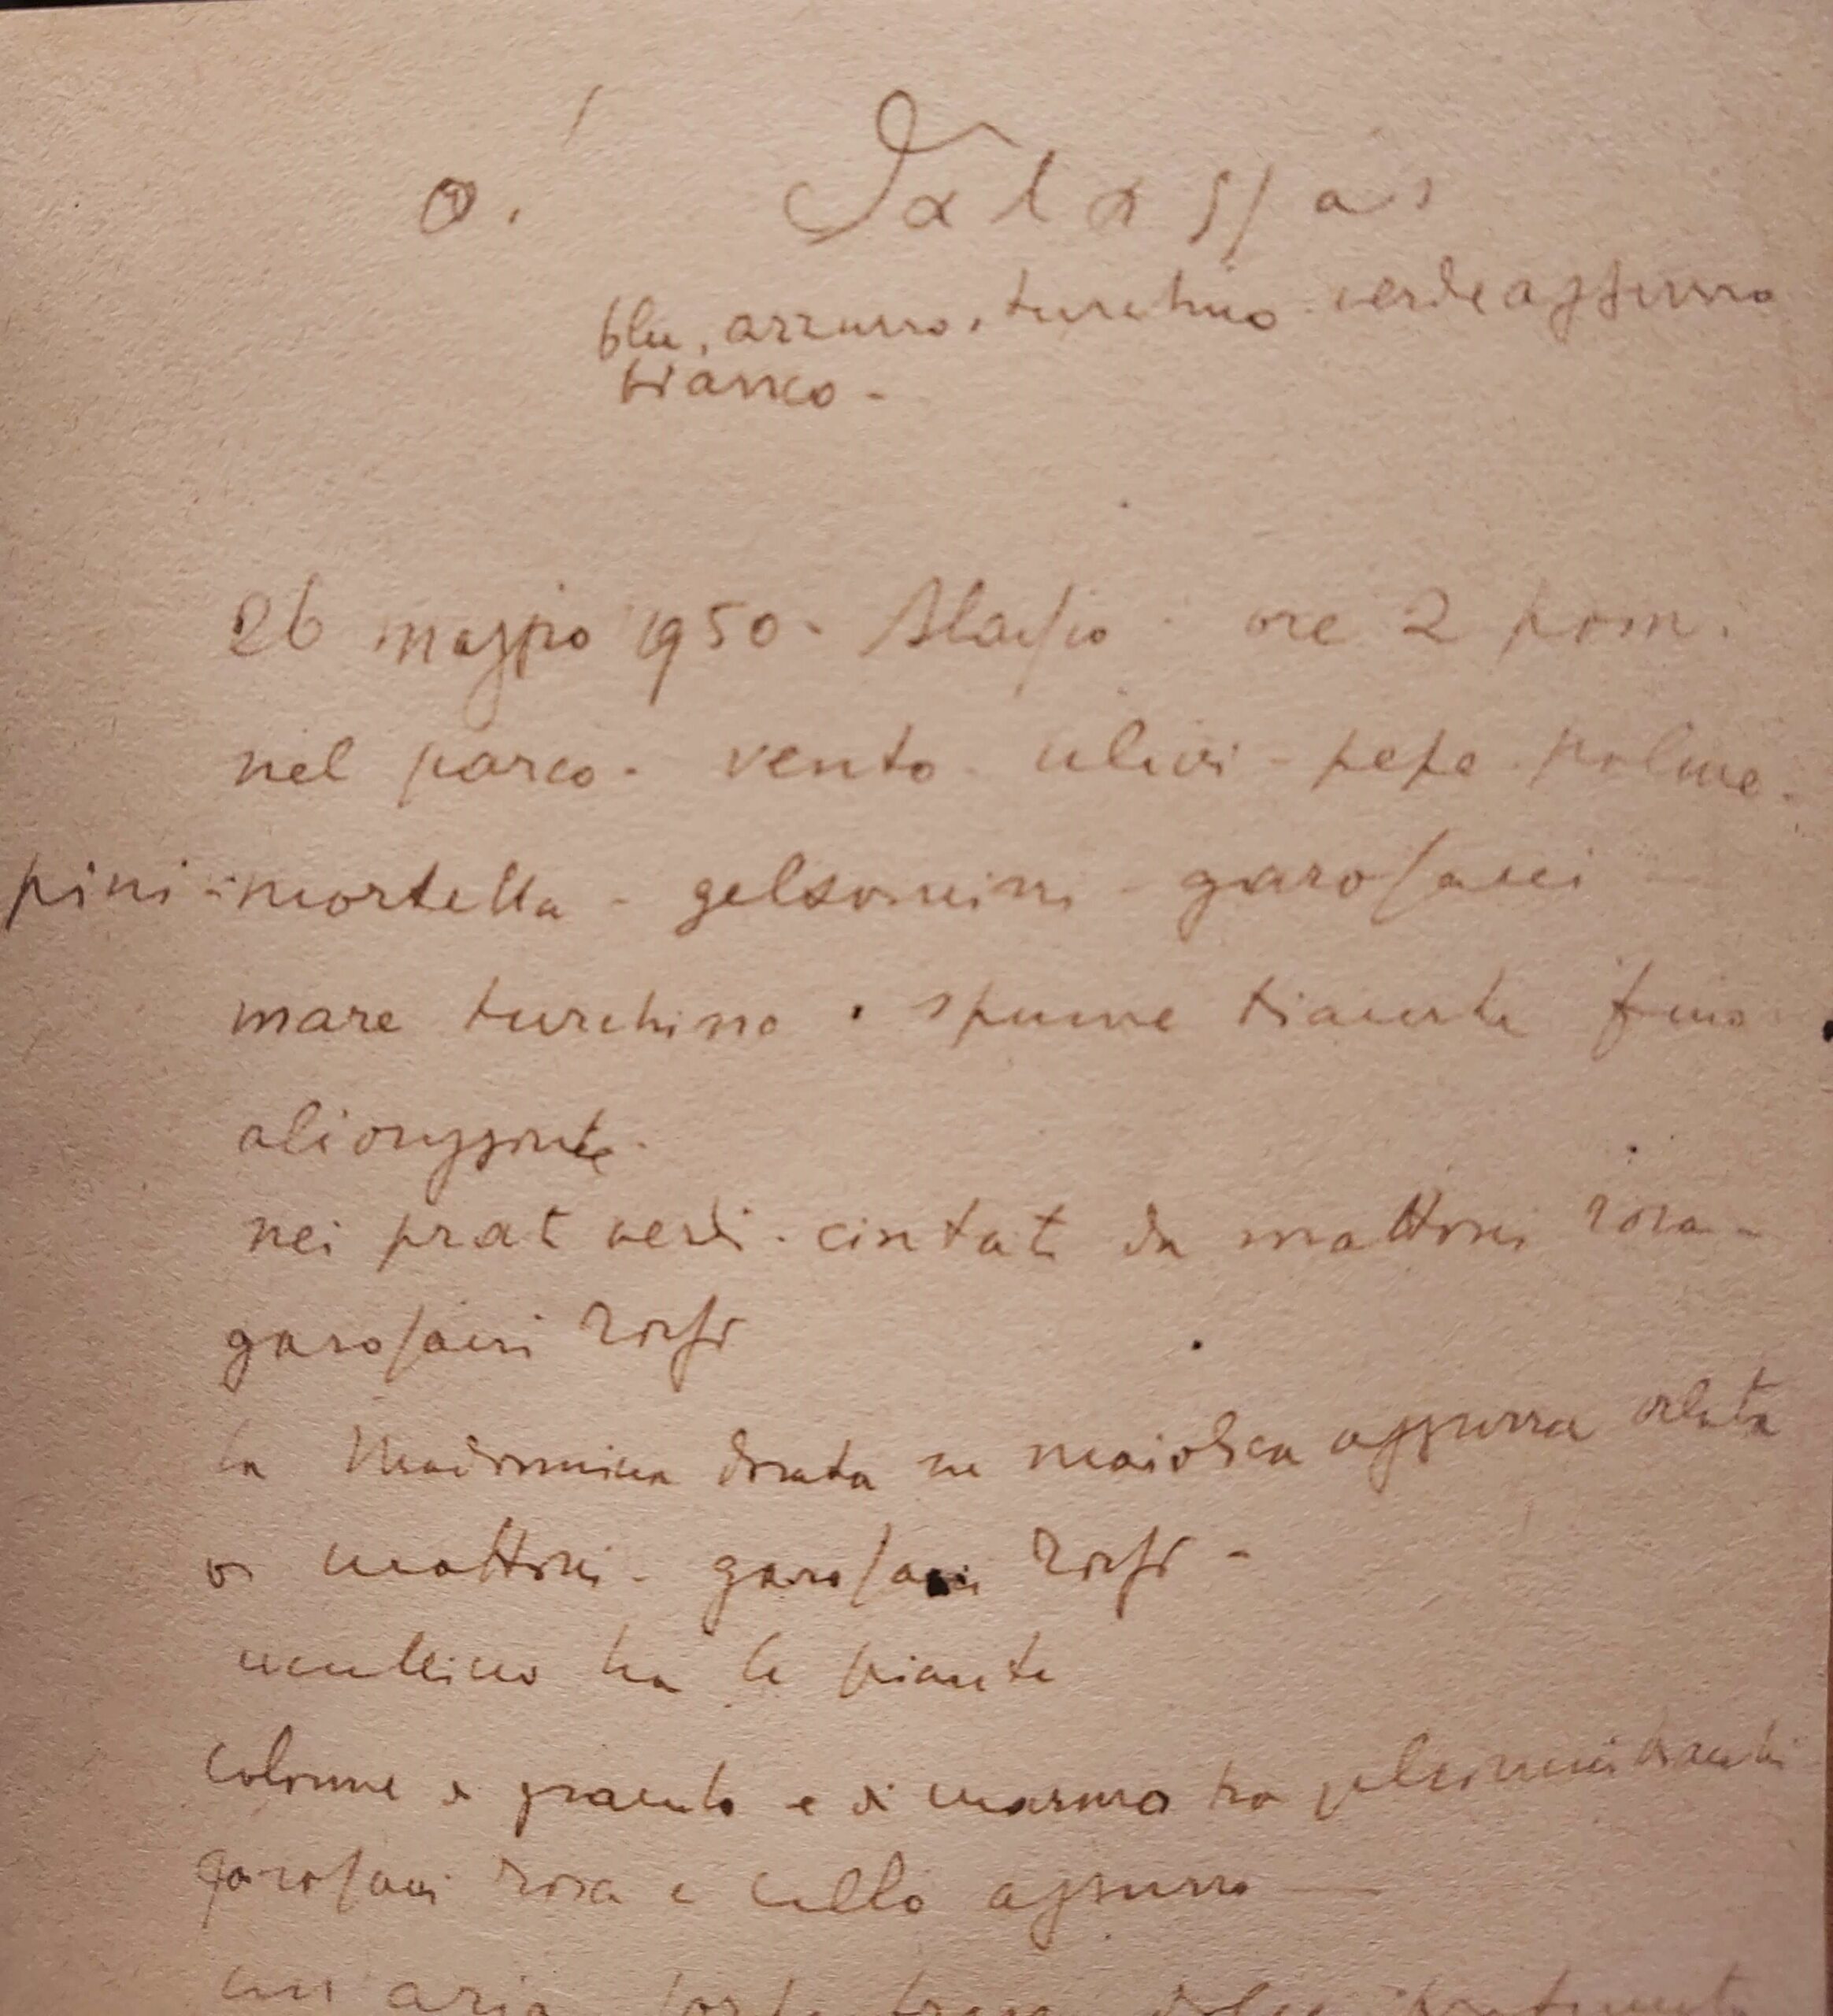 O. Talassa
blu, azzurro, turchino verdeazzurro
bianco -
26 maggio 1950 - Alassio - ore 2 pom.
nel parco - vento - ulivi - pepe - palme -
pini - mortella - gelsomini - garofani -
mare turchino - spume bianche fino
all'orizzonte.
nei prati verdi - cintati da mattoni rosa -
garofani rossi
la Madonnina dorata su maiolica azzurra orlata
di mattoni - garofani rossi -
mulino tra le piante
colonne di granito e di marmo tra gelsomini bianchi
garofani rosa e cielo azzurro —
un'aria forte